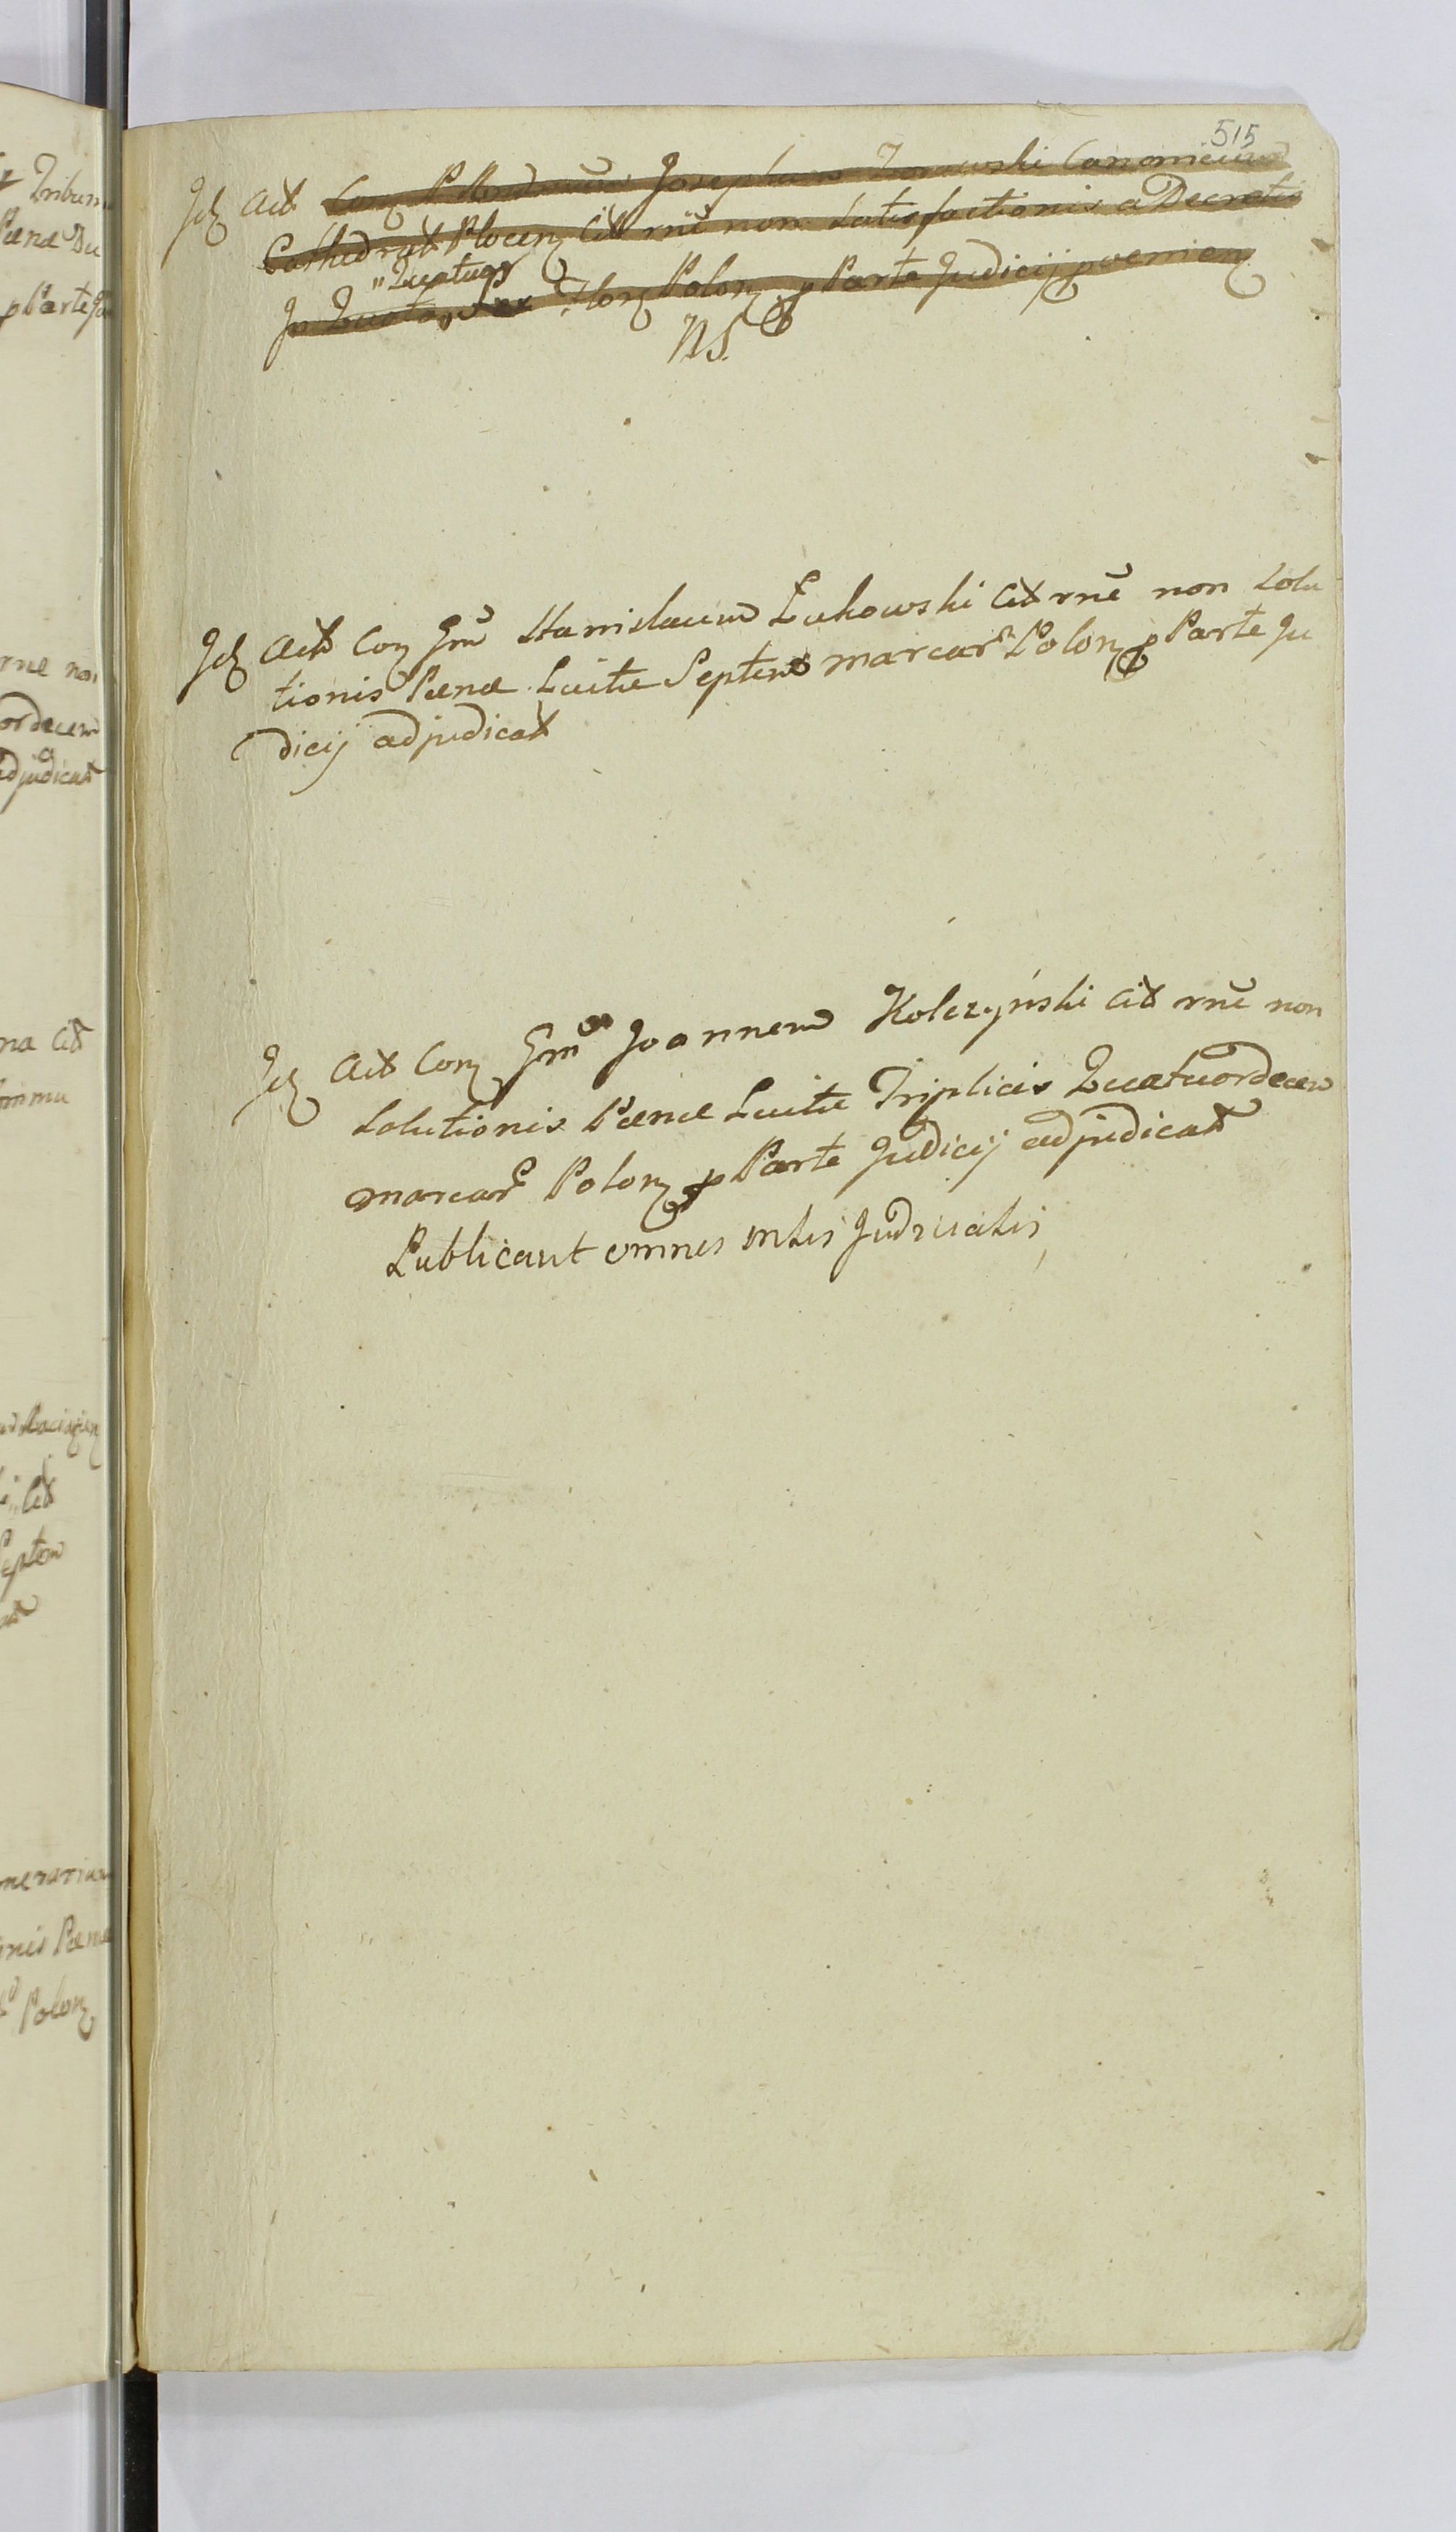 515
Id Act Con P Rndmum Josephum Zorawski Canonicum
Cathedral Plocen Cit rne non Satisfactionis a Decretis
"Quatuor
In Quatuor Flor Polon p Parte Judicij pvenien
NS.
Id Act Con Gm Stanislaum Łukowski Cit rne non Solu
tionis Pænæ Luitæ Septem marcar Polon p Parte Ju
dicij adjudicat
Id Act Con Gm Joannem Kolczyński Cit rne non
Solutionis Pænæ Luitæ Triplicis Quatuordecem
marcar Polon p Parte Judicij adjudicat
Publicavt omnes Judicialis
Tribun
Pænæ Du
p Parte Ju
rne non
ordecem
adjudicat
na Cit
Cit
Septem
nis Pænæ
Polon